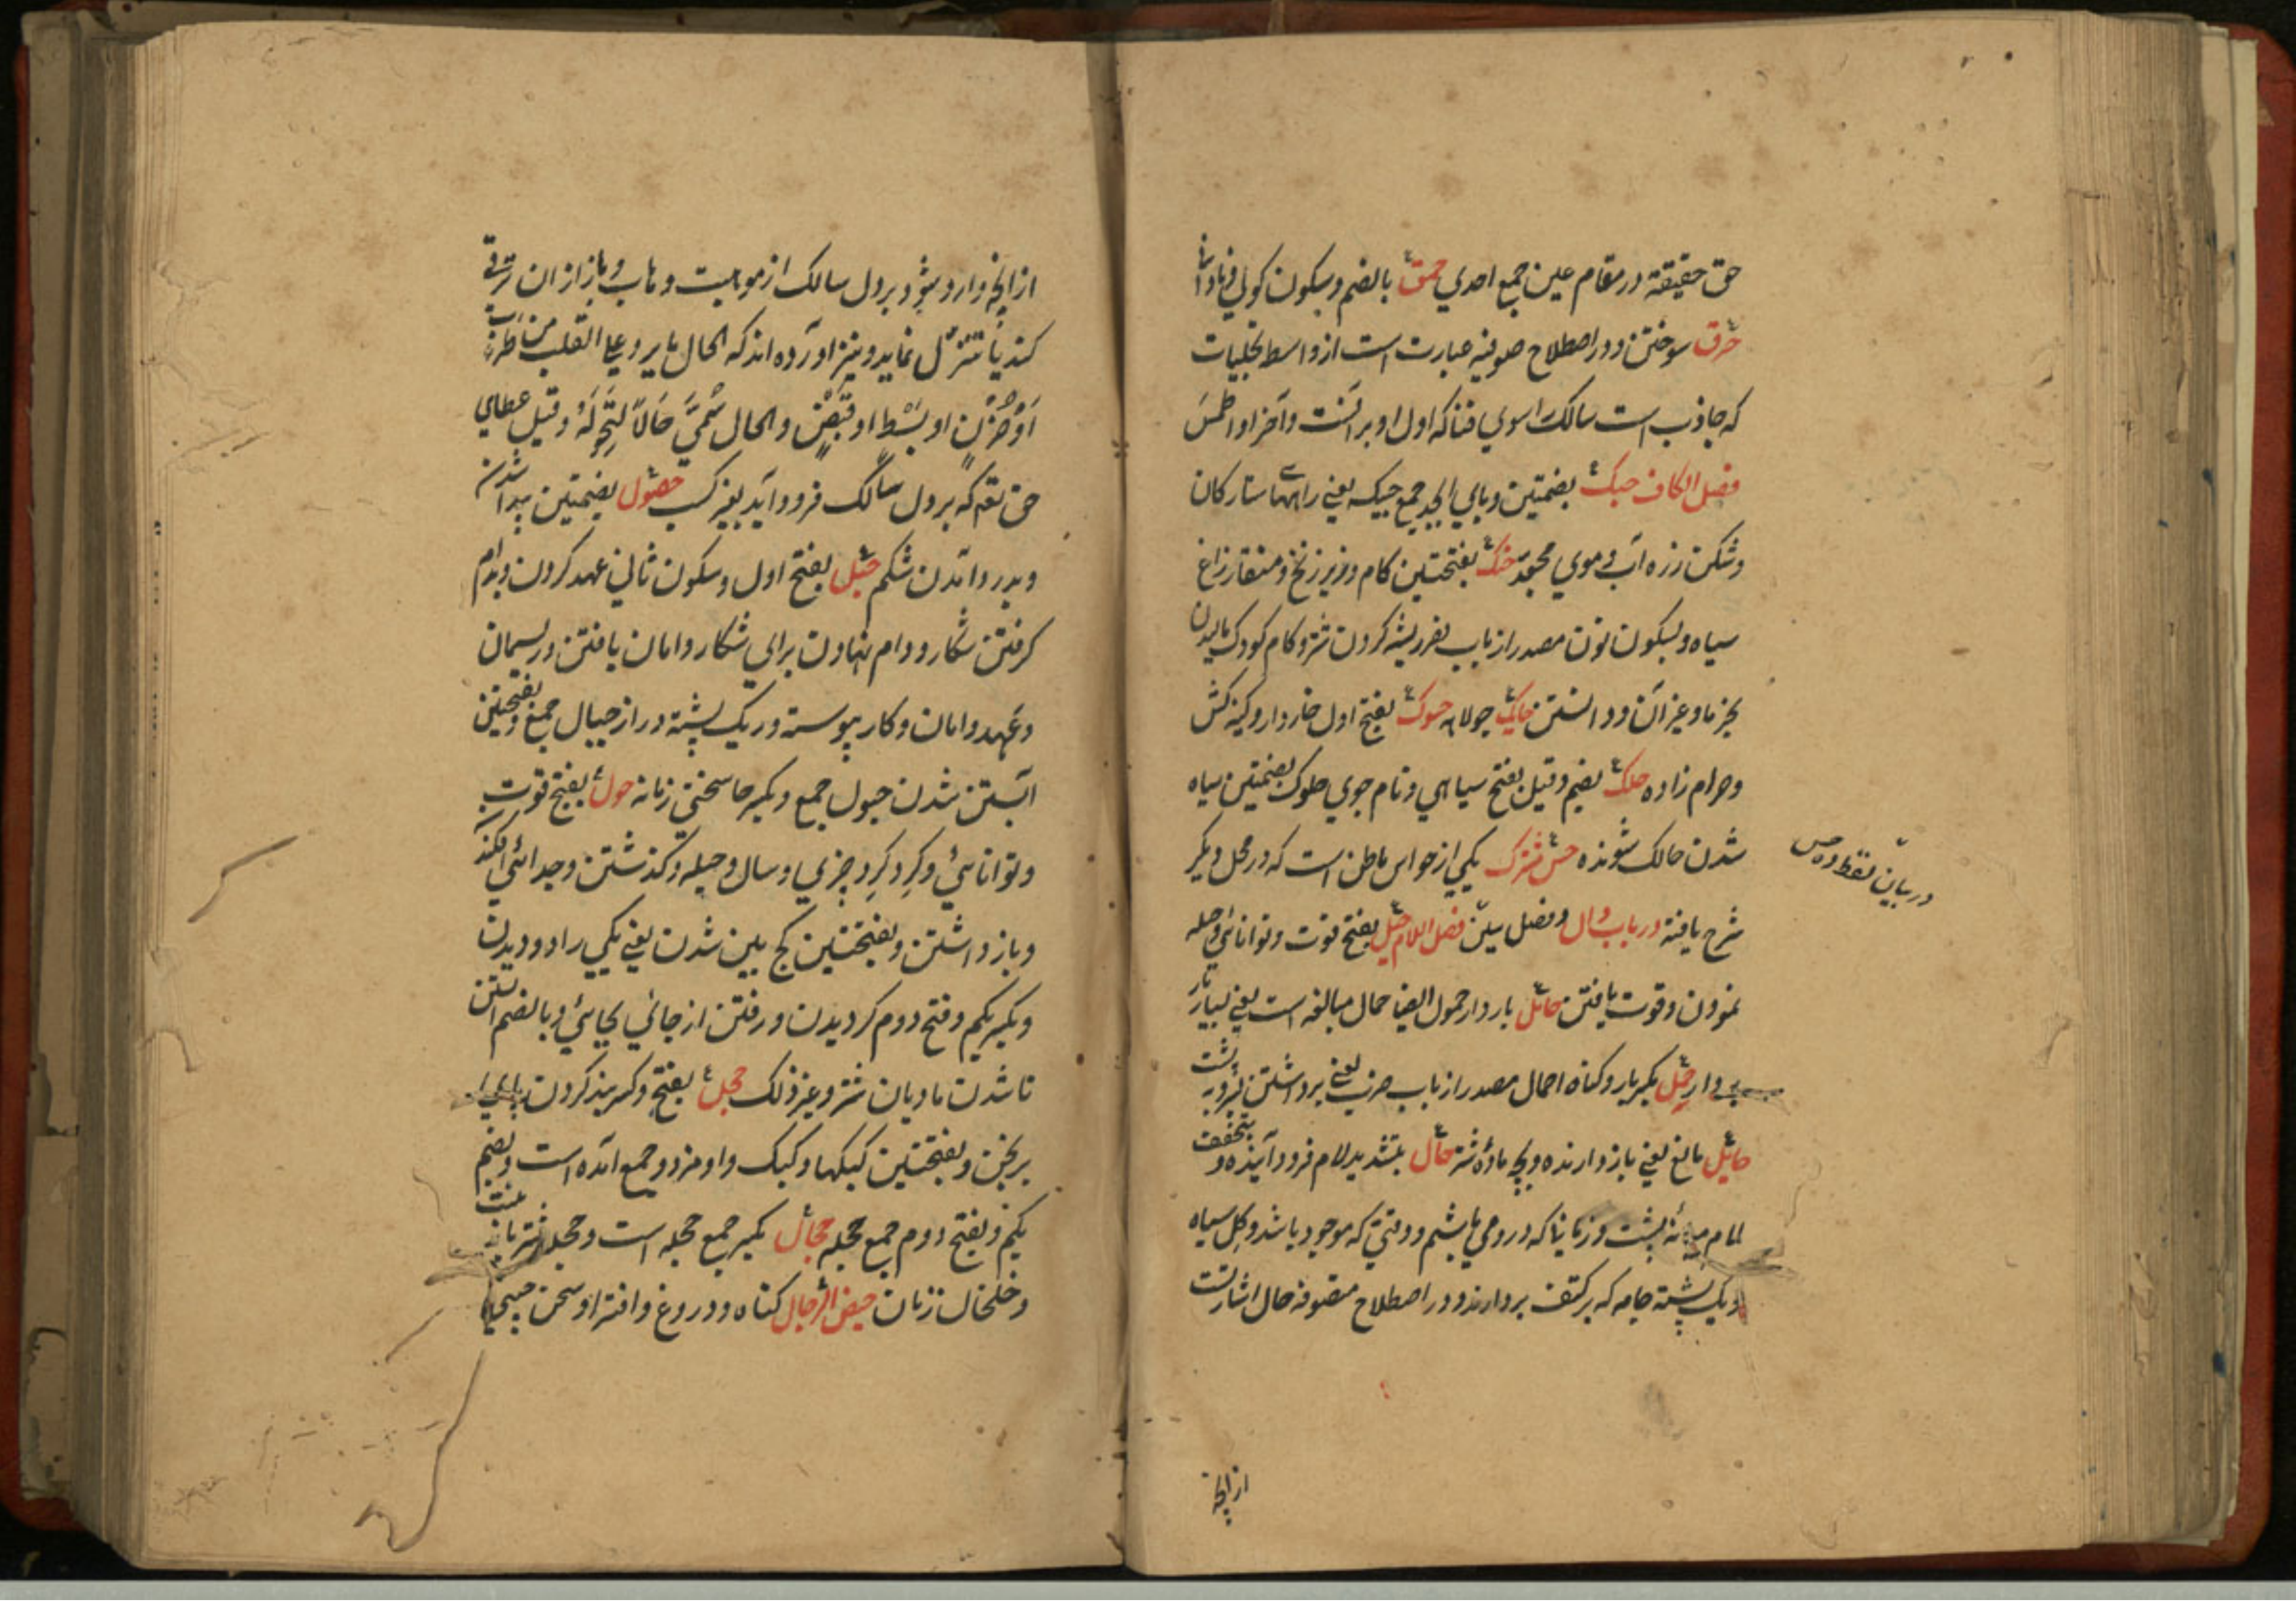 حق حقیقته در مقام عین جمع احدی حمق بالضم و سکون کولی و نادا
حرق سوختن و در اصطلاح صوفیه عبارت است از واسط تجلیات
که جاذب است سالک را سوی فنا که اول او برق است و آخر او طمس
فصل الکاف حبک بضمتین و بای ابجد جمع حبیکه یعنی راههای ستارکان
و شکن زره آب و موی مجعد حنک بفتحتین کام و زیر زنخ و منقار زاغ
سیاه و بسکون نون مصدر از باب نصر ریشه کردن شتر و کام کودک مالیدن
بخرما و غیر آن و دانستن حایک جولاه حسوک بفتح اول خاردار و کینه کش
و حرام زاده حلک بضم و قیل بفتح سیاهی و نام جوی حلوک بضمتین سیاه
شدن حالک شونده حس مشترک یکی از حواس باطن است که در محل دیگر
شرح یافته در باب دال و فصل سین فصل اللام حیل بفتح قوت و توانائی و حیله
نمودن و قوت یافتن حامل باردار حمول ایضا حمال مبالغه است یعنی بسیار بار
بردار حمل بکسر بار و کناه احمال مصدر از باب ضرب یعنی برداشتن بر پشت
حایل مانع یعنی باز دارنده و بچه ماده شتر حال بتشدید لام فرود آینده و بتخفیف
لام میانه پشت و زمانیا که در وی باشیم و وقتی که موجود باشد و کل سیاه
و یک پشته جامه که بر کتف بردارند و در اصطلاح متصوفه حال اشارتست
در بیان نقطه ده
ازانچه
ازانچه وارد شود بر دل سالک از موهبت وهاب و باز از ان ترقی
کند یا تنزل نماید و نیز آورده اند که الحال ما یرد علی القلب من طرب
او حزن او بسط او قبض و الحال سمی حالا لتحوله و قیل عطای
حق تعه که بر دل سالک فرود آید بغیر کسب حصول بضمتین پیدا شدن
و بدرد آمدن شکم حبل بفتح اول و سکون ثانی عهد کردن و بدام
کرفتن شکار و دام نهادن برای شکار و امان یافتن و ریسمان
و عهد و امان و کار پیوسته و ریک پشته دراز حبال جمع و بفتحتین
آبستن شدن حبول جمع و بکسر حا سختی زمانه حول بفتح قوت
و توانائی و کرد کرد چیزی و سال و حیله و کذشتن و جدائی افکندن
و باز داشتن و بفتحتین کج بین شدن یعنی یکی را دو دیدن
و بکسر یکم و فتح دوم کردیدن و رفتن از جائی بجائی و بالضم آبستن
نا شدن مادیان شتر و غیر ذلک حجل بفتح و کسر بند کردن پای
برنجن و بفتحتین کبکها و کبک واو مفرد و جمع آمده است و بضم
یکم و بفتح دوم جمع حجله حجال بکسر جمع حجله است و حجله
و خلخال زنان حیض الرجال کناه و دروغ و افترا و سخن چینی